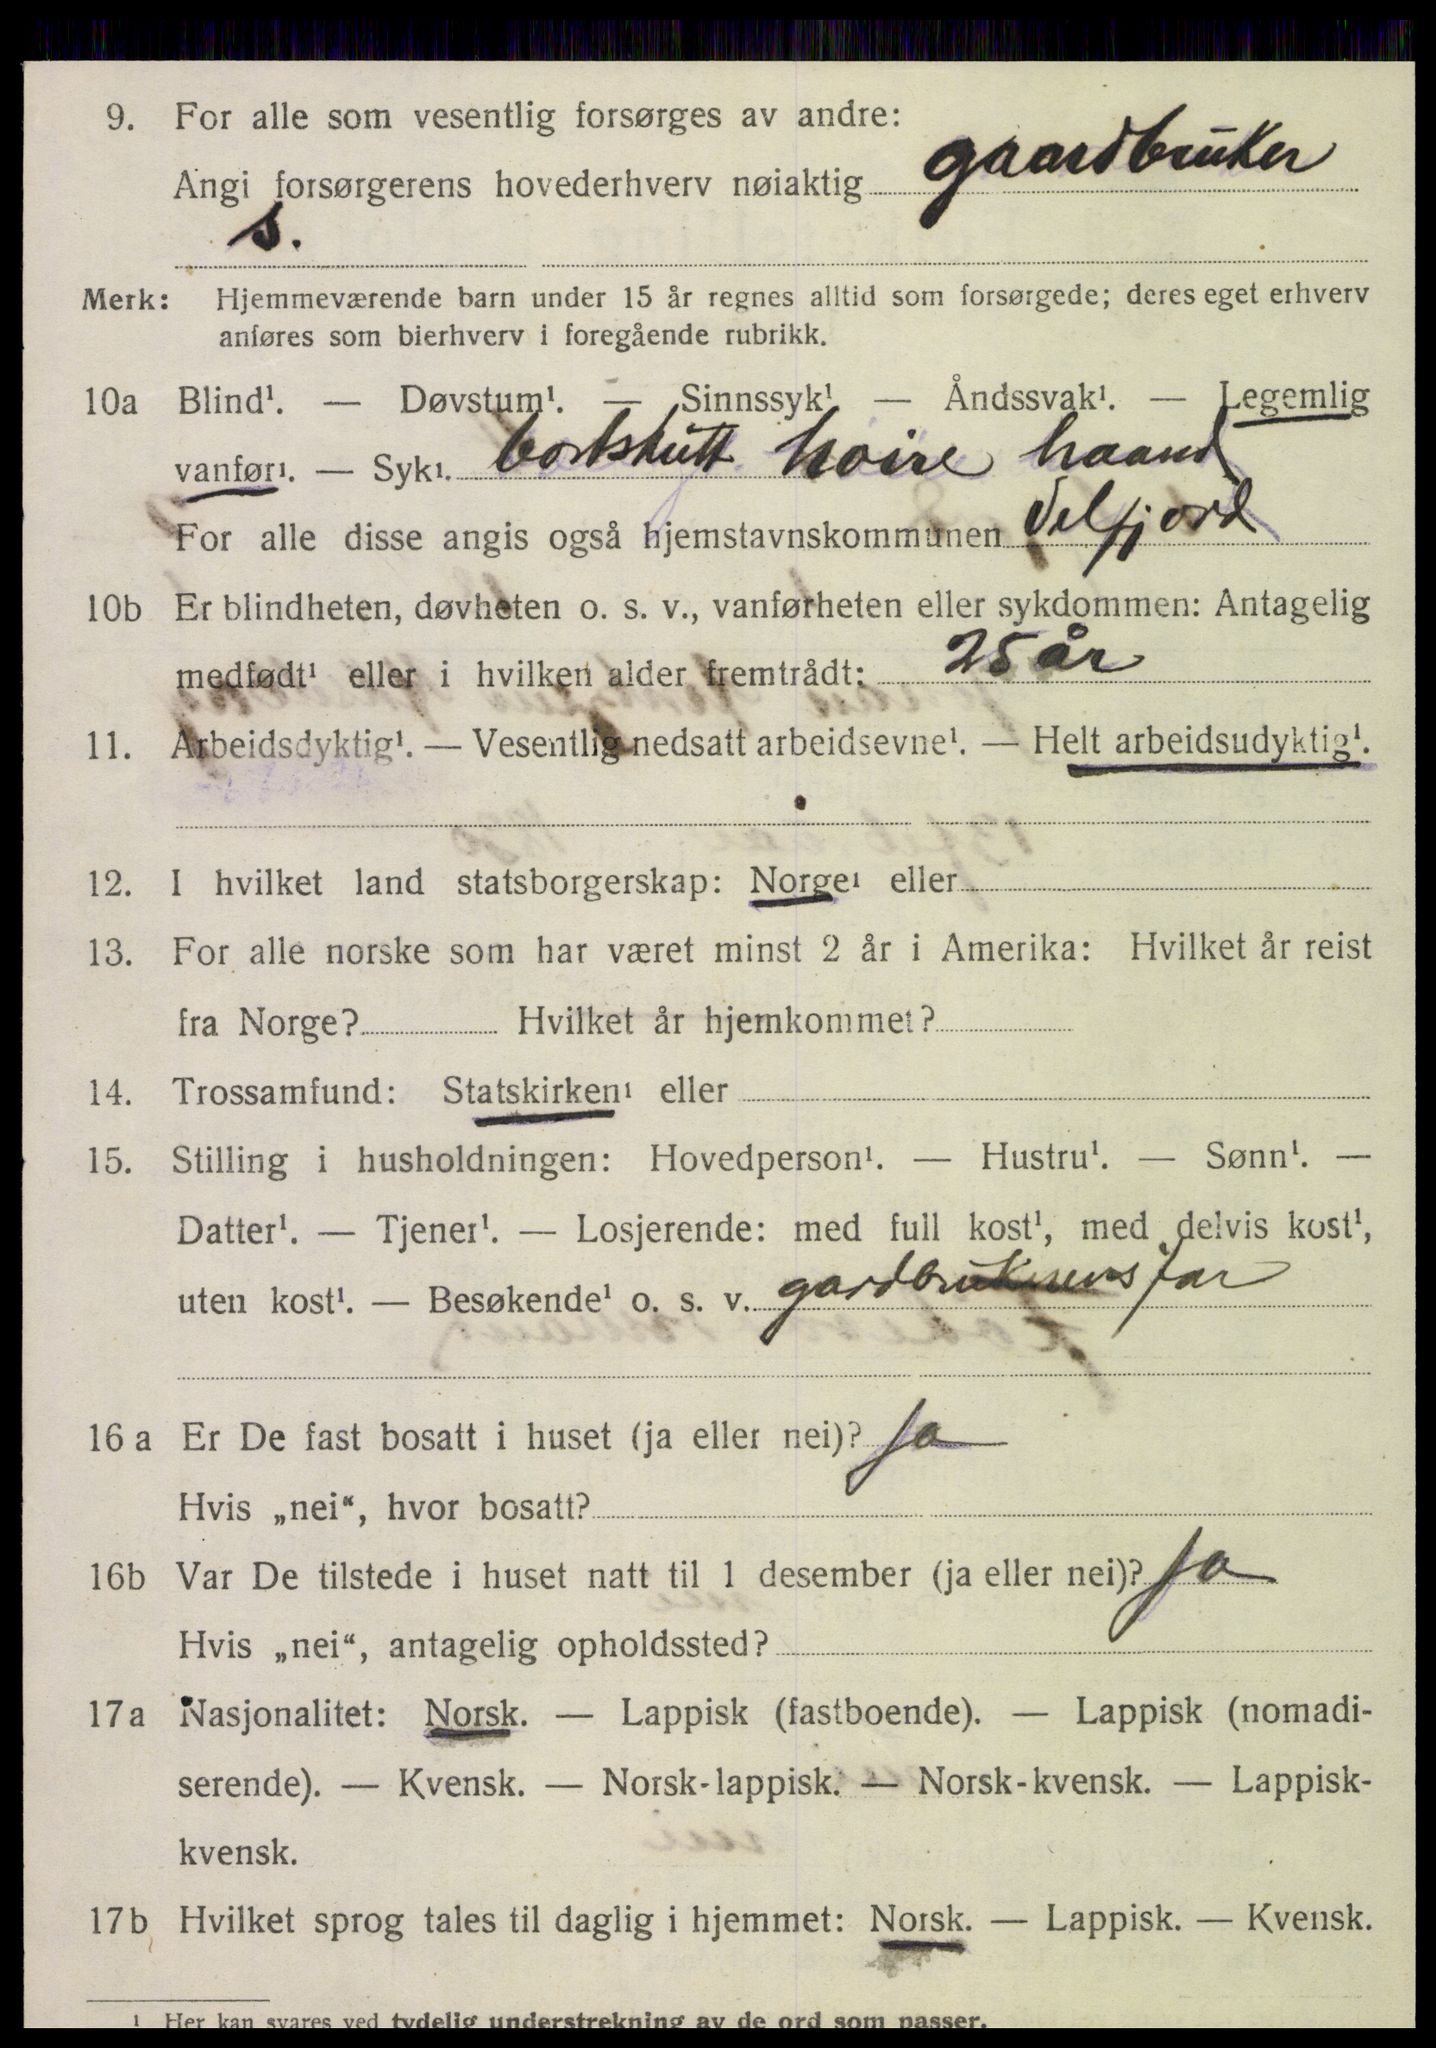 9. For alle som vesentlig forsørges av andre:
Angi forsørgerens hovederhverv nøiaktig gaardbruker
s.
Merk: Hjemmeværende barn under 15 år regnes alltid som forsørgede; deres eget erhverv
anføres som bierhverv i foregående rubrikk.
10a Blind¹. — Døvstum¹. — Sinnssyk¹. — Åndssvak¹. — Legemlig
vanfør¹. — Syk¹. bortskutt høire haand
For alle disse angis også hjemstavnskommunen Velfjord
10b Er blindheten, døvheten o. s. v., vanførheten eller sykdommen: Antagelig
medfødt¹ eller i hvilken alder fremtrådt: 25 år
11. Arbeidsdyktig¹. — Vesentlig nedsatt arbeidsevne¹. — Helt arbeidsudyktig¹.
12. I hvilket land statsborgerskap: Norge¹ eller
13. For alle norske som har været minst 2 år i Amerika: Hvilket år reist
fra Norge? Hvilket år hjemkommet?
14. Trossamfund: Statskirken¹ eller
15. Stilling i husholdningen: Hovedperson¹. — Hustru¹. — Sønn¹. —
Datter¹. — Tjener¹. — Losjerende: med full kost¹, med delvis kost¹,
uten kost¹. — Besøkende¹ o. s. v. gardbrukerens far
16a Er De fast bosatt i huset (ja eller nei)? ja
Hvis „nei“, hvor bosatt?
16b Var De tilstede i huset natt til 1 desember (ja eller nei)? ja
Hvis „nei“, antagelig opholdssted?
17a Nasjonalitet: Norsk. — Lappisk (fastboende). — Lappisk (nomadi-
serende). — Kvensk. — Norsk-lappisk. — Norsk-kvensk. — Lappisk-
kvensk.
17b Hvilket sprog tales til daglig i hjemmet: Norsk. — Lappisk. — Kvensk.
¹ Her kan svares ved tydelig understrekning av de ord som passer.